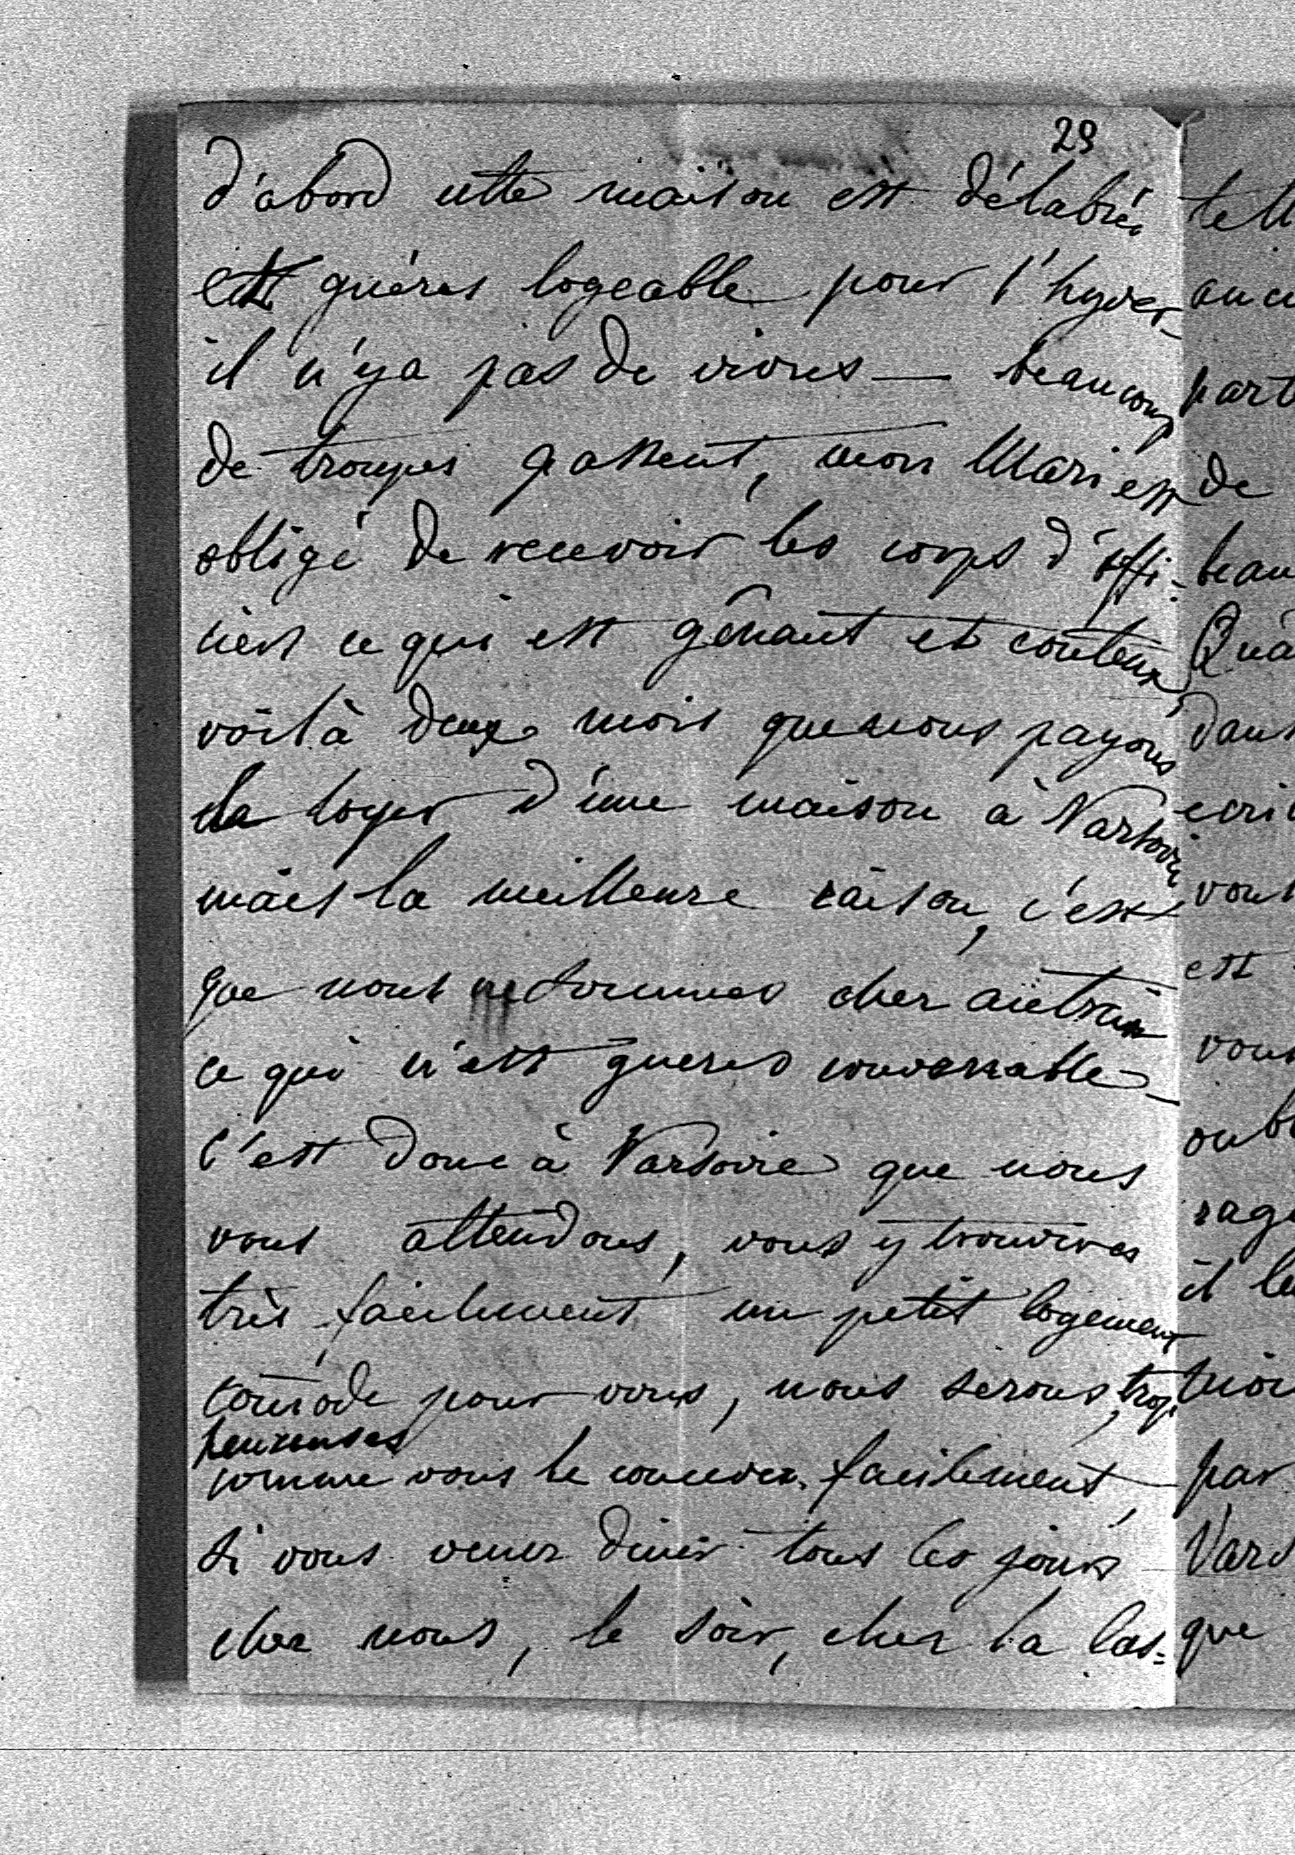 29
d'abord cette maison est délabrée
est guéres logeable pour l'hyver
il n'y a pas de vivres — beaucoup
de troupes passent, mon Mari est
obligé de recevoir les corps d'offi-
ciers ce qui est gênant et couteux
voilà deux mois que nous payons
le loyer d'une maison à Varsovie
mais la meilleure raison, c'est
que nous sommes chez autrui
ce qui n'est gueres convenable_
C'est donc à Varsovie que nous
vous attendons, vous y trouveres
très facilement un petit logement
comode pour vous, nous serons, trop
heureuses
comme vous le concevez facilement,
si vous venez diner tous les jours
chez nous, le soir, chez la Cas=
tell
part
de
beau
dans
vous
est
vous
il
par
que